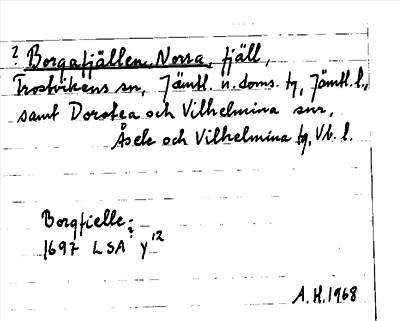 ? Borgafjällen, Norra, fjäll,
Frostvikens sn, Jämtl. n. doms. tg, Jämtl. l.,
samt Dorotea och Vilhelmina snr,
Åsele och Vilhelmina tg, Vb. l.
Borgfielle-?
1697 LSA y12
A.H.1968